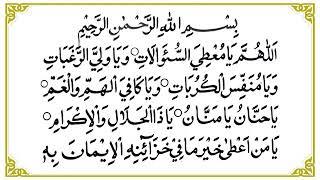 بِسْمِ اللهِ الرَّحْمٰنِ الرَّحِيْمِ
اَللّٰهُمَّ يَا مُعْطِيَ السُّؤَالَاتِ۝ وَيَا وَلِيَّ الرَّغَبَاتِ
وَيَا مُنَفِّسَ الْكُرُبَاتِ۝ وَيَا كَافِيَ الْهَمِّ وَالْغَمِّ۝
يَا حَنَّانُ يَا مَنَّانُ۝ يَا ذَا الْجَلَالِ وَالْاِكْرَامِ۝
يَا مَنْ اَعْطٰى خَيْرَ مَا فِيْ خَزَآئِنِهِ الْاِيْمَانَ بِهٖ